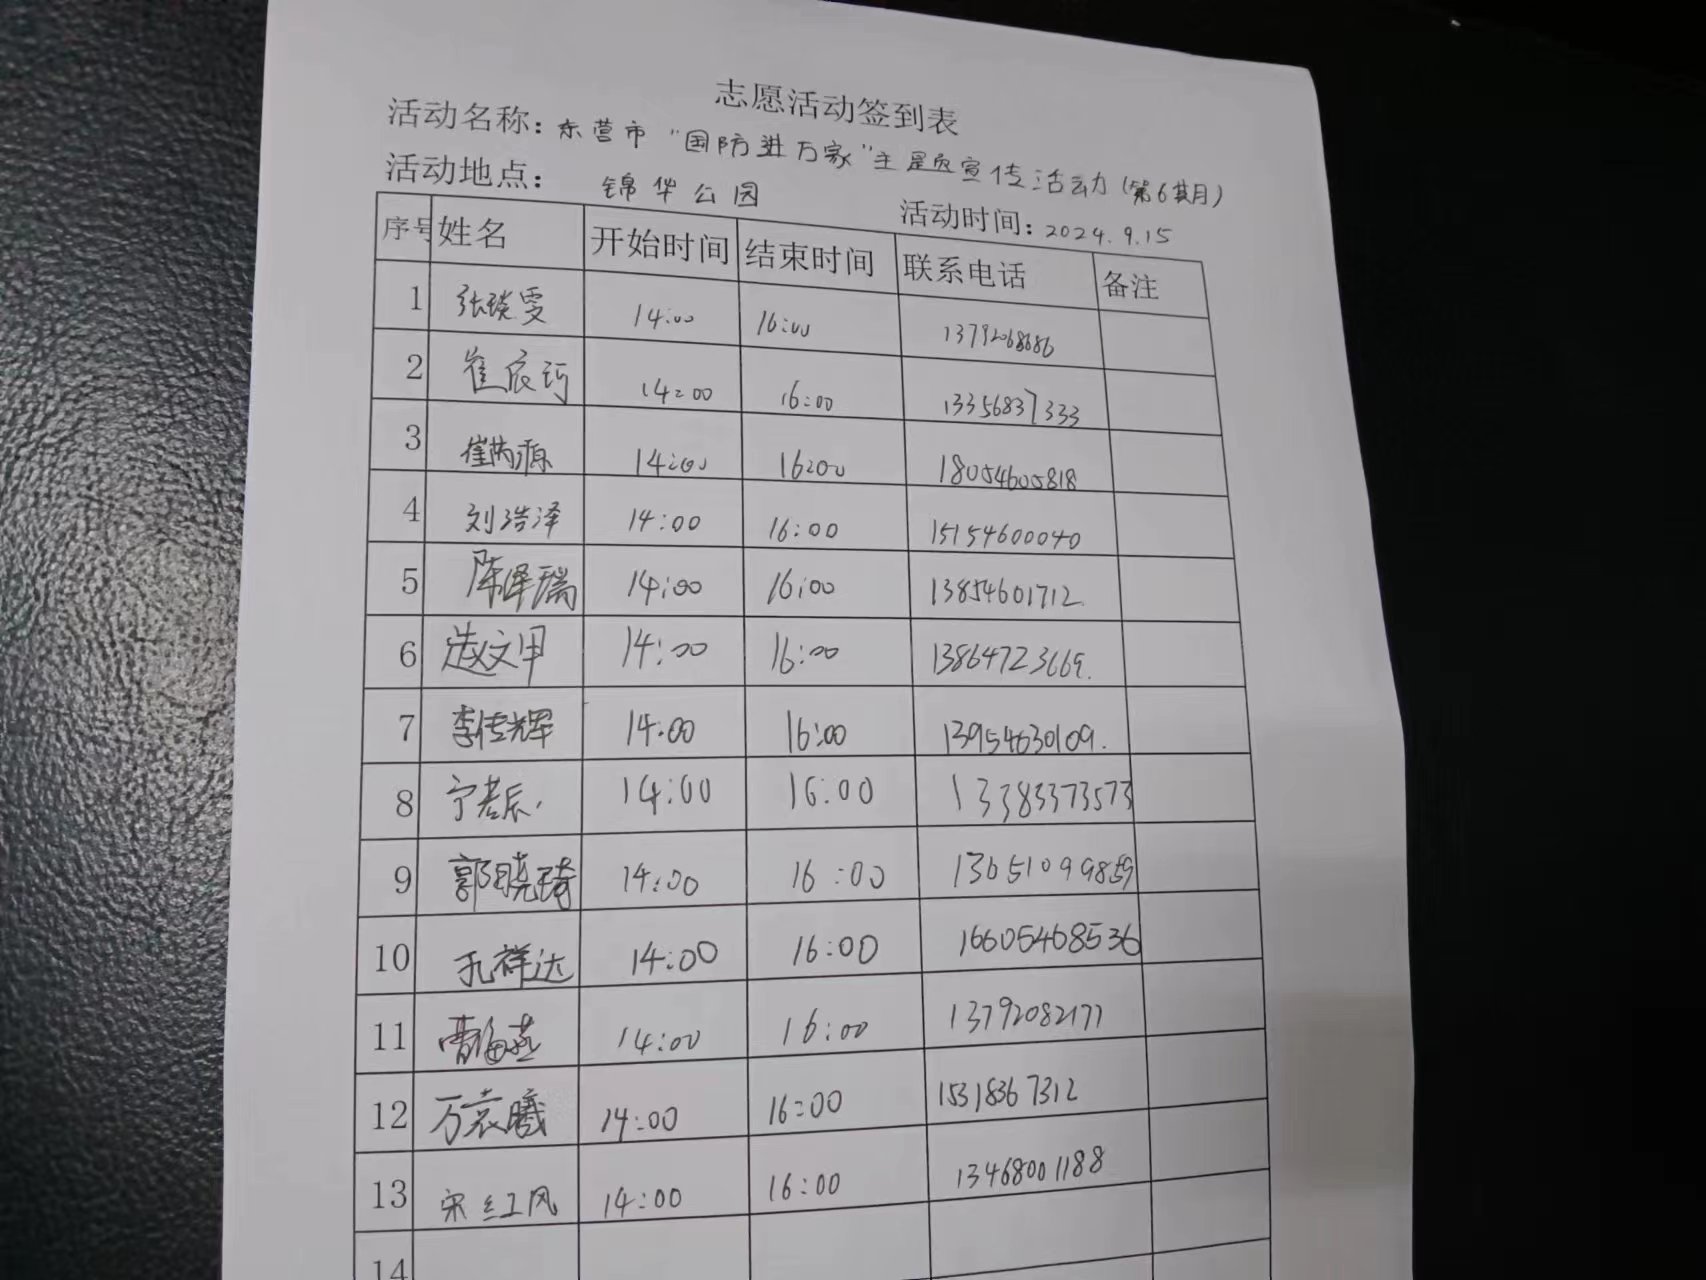 志愿活动签到表
活动名称：东营市“国防进万家”主题宣传活动（第6期）
活动地点：锦华公园 活动时间：2024.9.15
序号 姓名 开始时间 结束时间 联系电话 备注
1 张琰雯 14:00 16:00 13792068686
2 崔宸珂 14:00 16:00 13356837333
3 崔芮源 14:00 16:00 18054605818
4 刘浩泽 14:00 16:00 15154600040
5 陈泽瑞 14:00 16:00 13854601712
6 赵文甲 14:00 16:00 13864723669
7 李传辉 14:00 16:00 13954630109
8 宁 辰 14:00 16:00 13383373573
9 郭晓琦 14:00 16:00 13651099859
10 孔祥达 14:00 16:00 16605468536
11 曹海燕 14:00 16:00 13792082177
12 万袁曦 14:00 16:00 15318367312
13 宋红风 14:00 16:00 13468001188
14